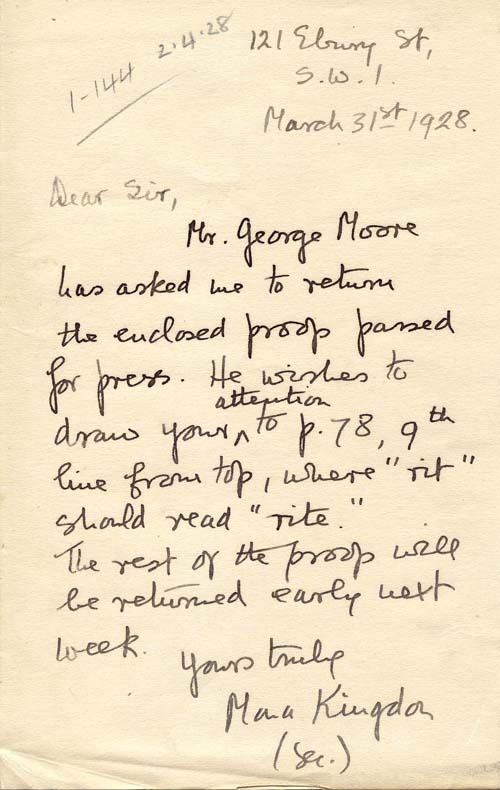 1-144 2.4.28
121 Ebury St,
S.W.1.
March 31st 1928.
Dear Sir,
Mr. George Moore
has asked me to return
the enclosed proofs passed
for press. He wishes to
attention
draw your ^ to p.78, 9th
line from top, where "rit"
should read "rite."
The rest of the proofs will
be returned early next
week.
Yours truly
Mona Kingdon
(Sec.)